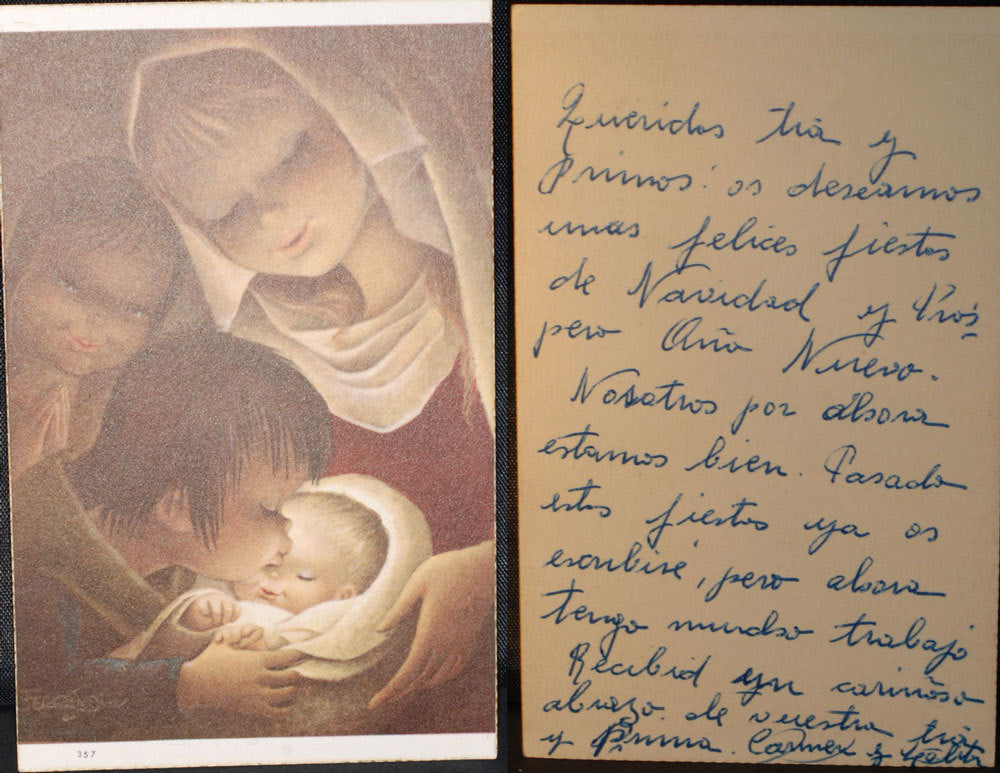 357
Queridos tia y
Primos: os deseamos
unas felices fiestas
de Navidad y Prós-
pero Año Nuevo.
Nosotros por ahora
estamos bien. Pasado
estas fiestas ya os
escribiré, pero ahora
tengo mucho trabajo
Recibid un cariñoso
abrazo de vuestra tia
y Prima. Carmen y